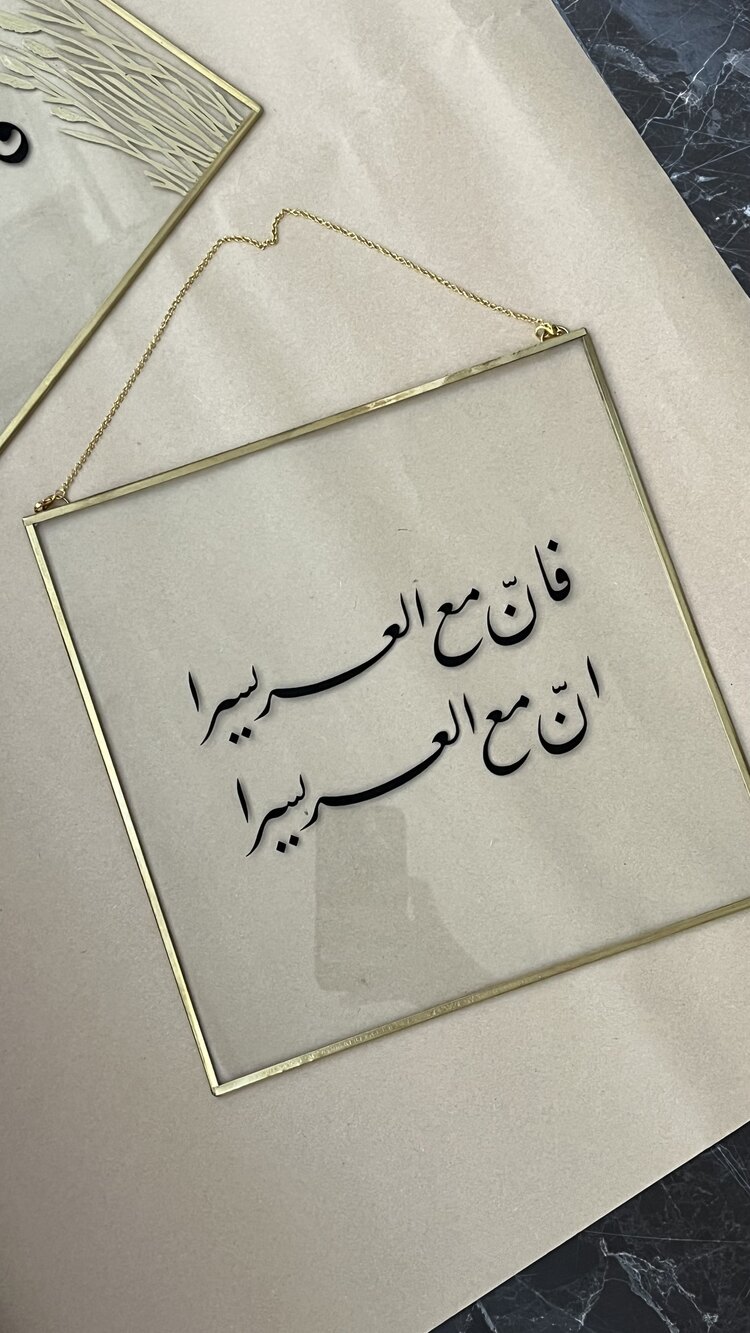 فانّ مع العسر یسیرا
انّ مع العسر یسیرا